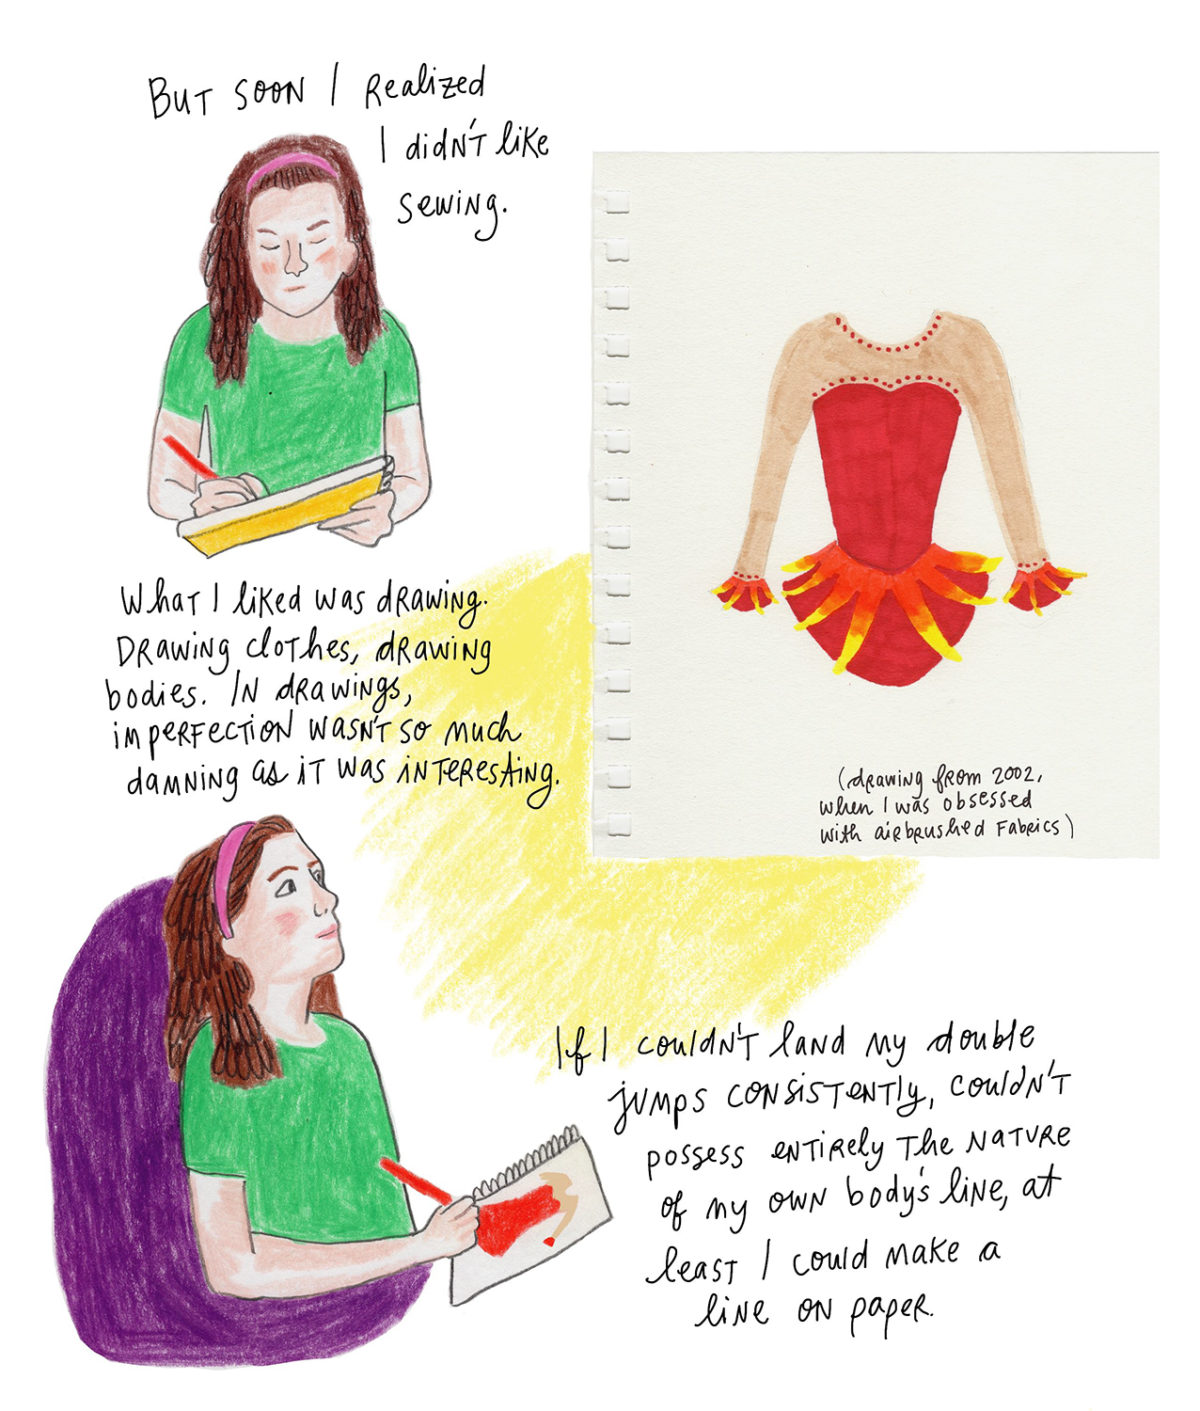 But soon I realized
I didn't like
sewing.
What I liked was drawing.
Drawing clothes, drawing
bodies. In drawings,
imperfection wasn't so much
damning as it was interesting.
(drawing from 2002,
when I was obsessed
with airbrushed fabrics)
If I couldn't land my double
jumps consistently, couldn't
possess entirely the nature
of my own body's line, at
least I could make a
line on paper.